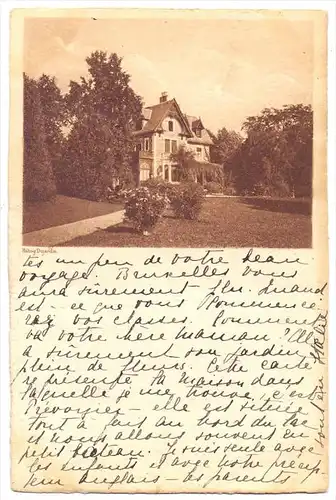 tés un peu de votre beau
voyage. Bruxelles vous
aura sûrement plu. Quand
est-ce que vous commence
rez vos classes. Comment
va votre chère maman? Elle
a sûrement son jardin
plein de fleurs. Cette carte
représente la maison dans
laquelle je me trouve, c'est
elle est située
tout à fait au bord du lac
et nous allons souvent en
petit bateau. Je suis seule avec
les enfants et avec notre précep
teur anglais - les parents